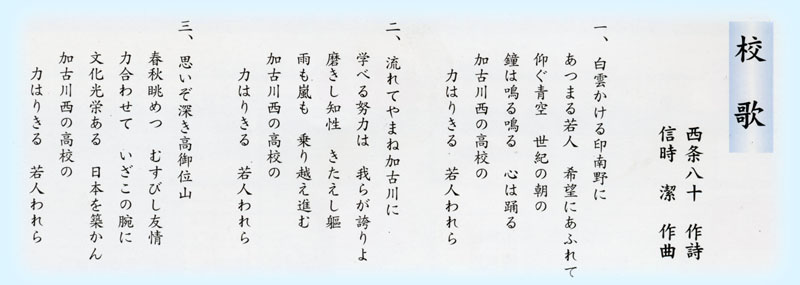 校歌
西条八十　作詩
信時　潔　作曲
一、白雲かける印南野に
あつまる若人　希望にあふれて
仰ぐ青空　世紀の朝の
鐘は鳴る鳴る　心は踊る
加古川西の高校の
力はりきる　若人われら
二、流れてやまね加古川に
学べる努力は　我らが誇りよ
磨きし知性　きたえし軀
雨も嵐も　乗り越え進む
加古川西の高校の
力はりきる　若人われら
三、思いぞ深き高御位山
春秋眺めつ　むすびし友情
力合わせて　いざこの腕に
文化光栄ある　日本を築かん
加古川西の高校の
力はりきる　若人われら